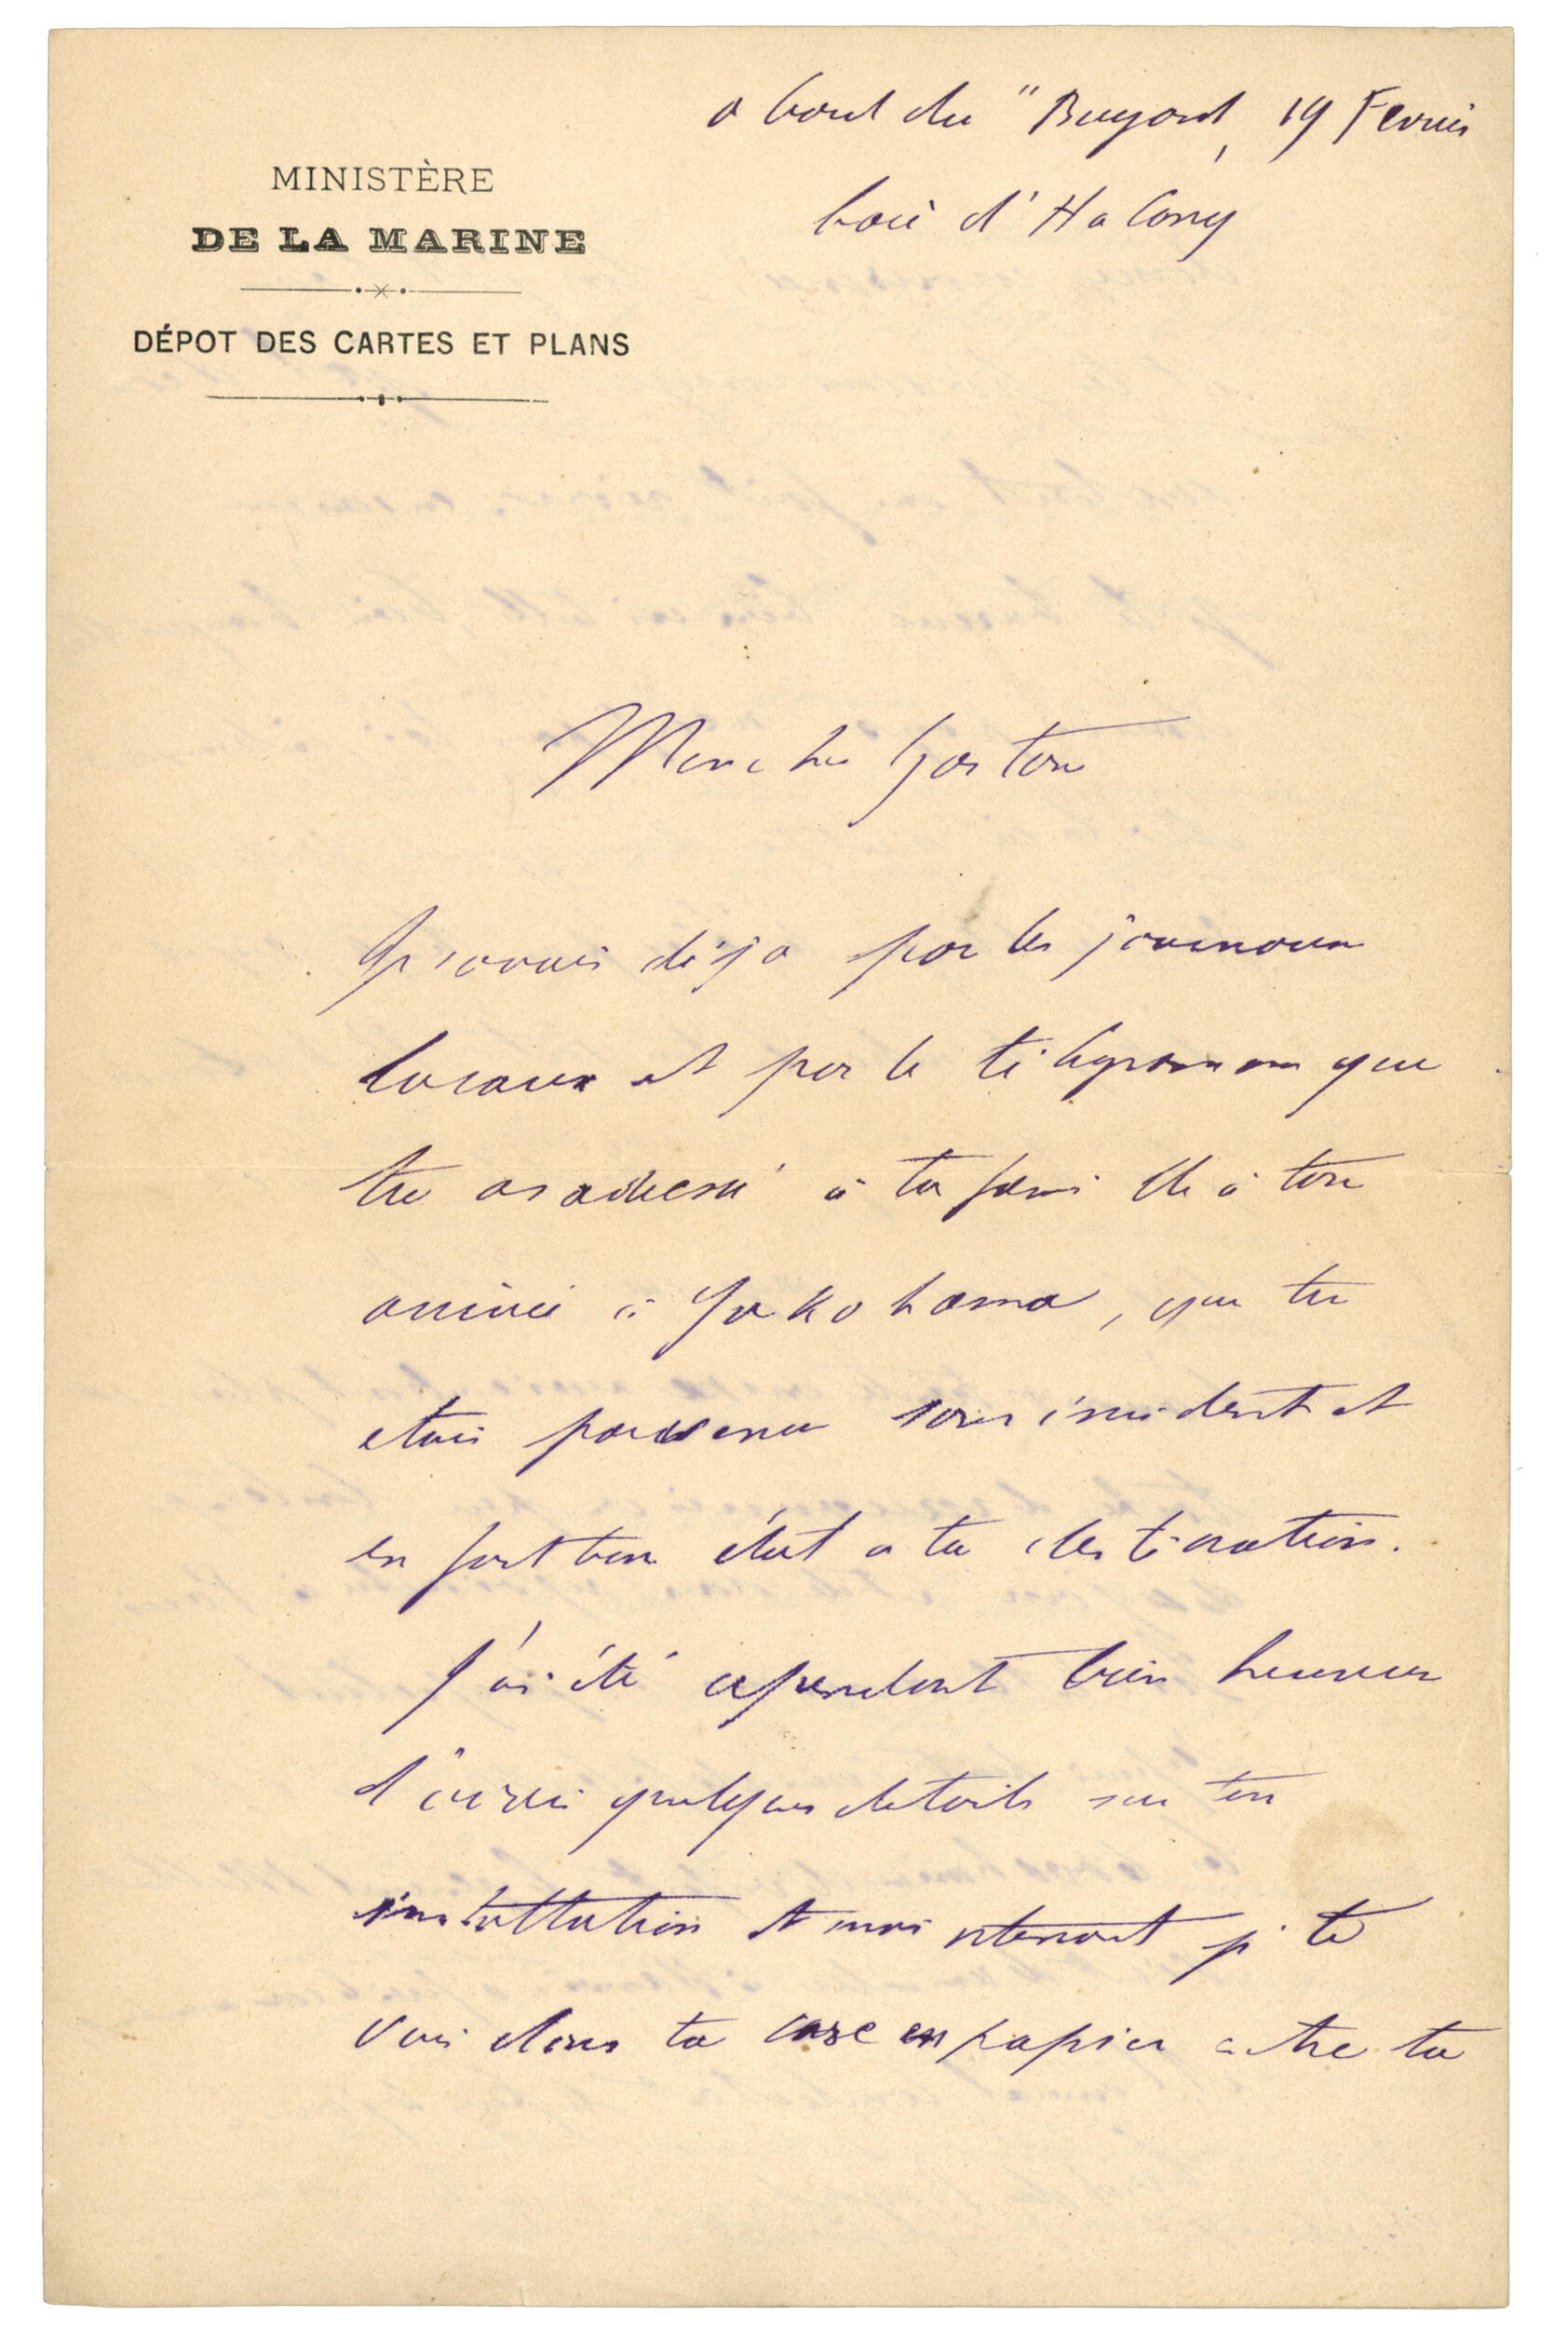 a bord du "Bayard, 19 Fevrier
baie d'Ha Long
MINISTÈRE
DE LA MARINE
DÉPOT DES CARTES ET PLANS
Mon cher Gaston
Je savais déja par les journaux
locaux et par le télégramme que
tu as adressé à ta famille à ton
arrivée à Yokohama, que tu
etais parvenu sans incident et
en fort bon état a ta destination.
J'ai été cependant bien heureux
d'avoir quelques details sur ton
installation et maintenant je te
vois dans ta case en papier entre ta